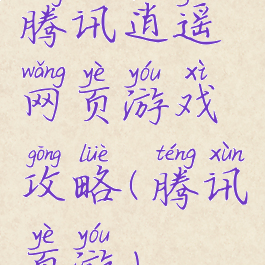 腾讯逍遥
wǎng yè yóu xì
网页游戏
gōng lüè téng xùn
攻略(腾讯
yè yóu
页游)